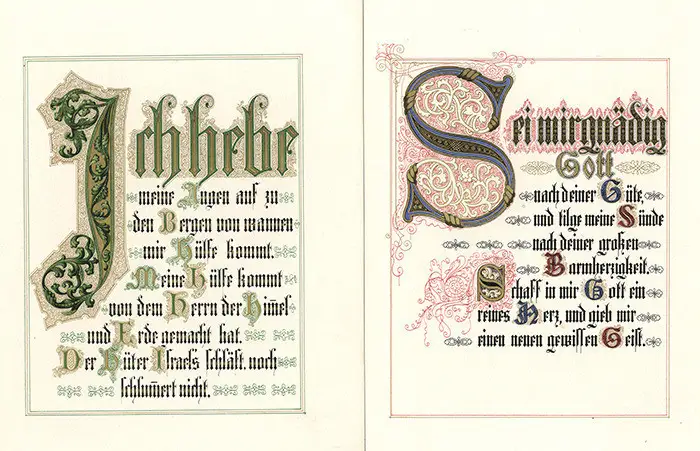 Ich hebe
meine Augen auf zu
den Bergen von wannen
mir Hülfe kommt.
Meine Hülfe kommt
von dem Herrn der Him̅el
und Erde gemacht hat.
Der Hüter Israels schläft noch
schlum̅ert nicht.
Sei mir gnädig
Gott
nach deiner Güte,
und tilge meine Sünde
nach deiner großen
Barmherzigkeit.
Schaff in mir Gott ein
reines Herz, und gieb mir
einen neuen gewissen Geist.